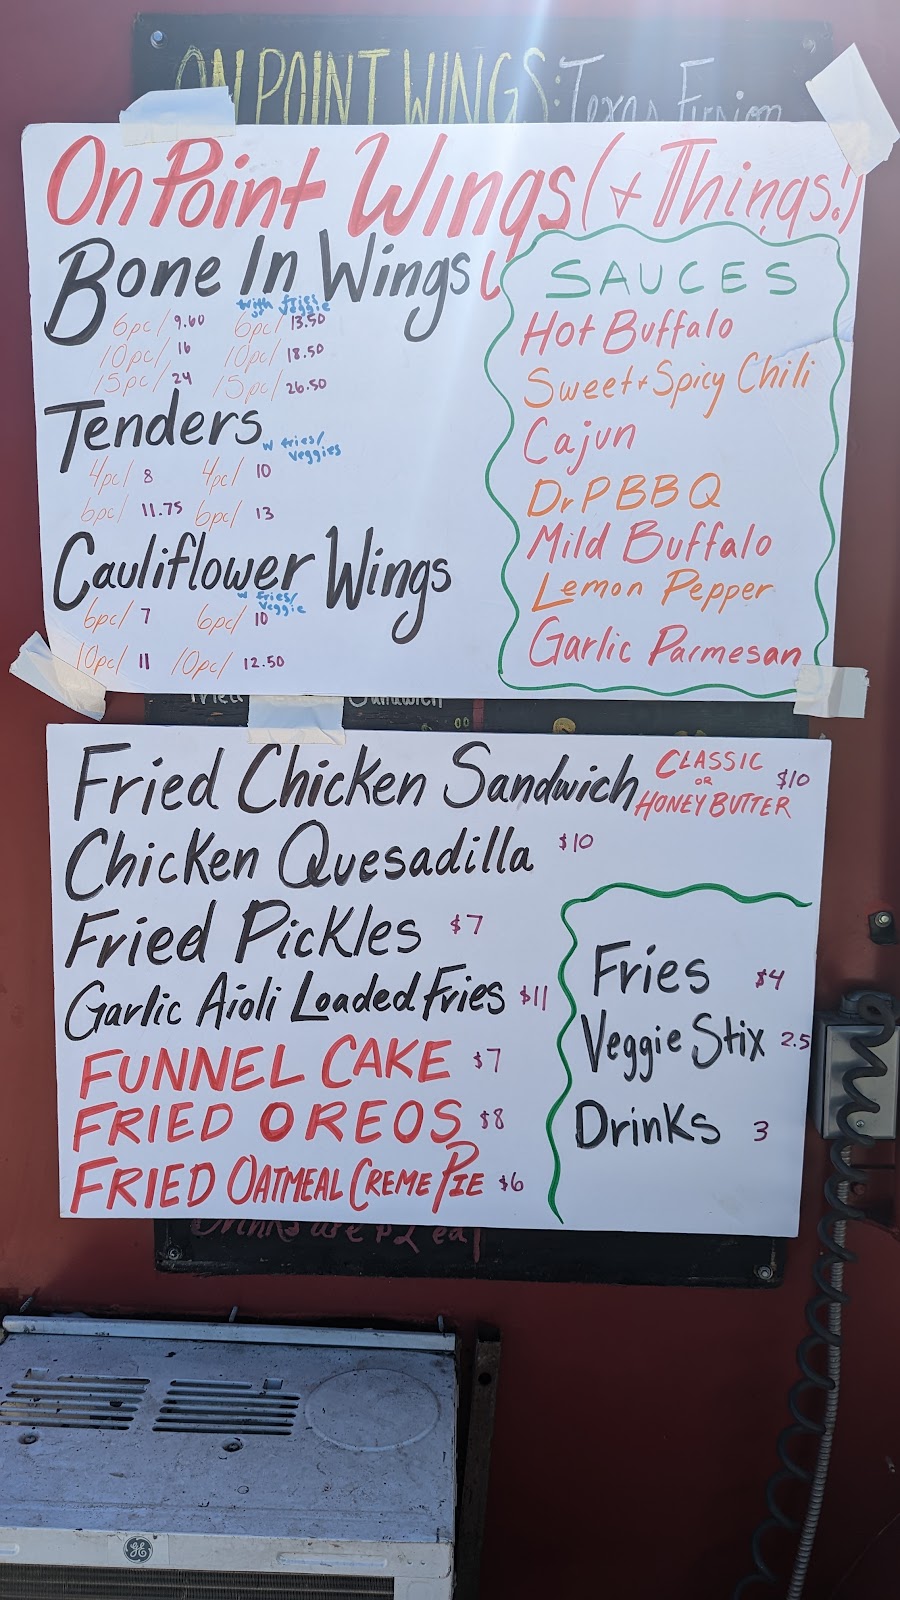 ON POINT WINGS: Texas Fusion
On Point Wings (+ Things!)
Bone In Wings
with fries/
veggie
6pc/ 9.60 6pc/ 13.50
10pc/ 16 10pc/ 18.50
15pc/ 24 15pc/ 26.50
Tenders
w fries/
veggies
4pc/ 8 4pc/ 10
6pc/ 11.75 6pc/ 13
Cauliflower Wings
w fries/
veggie
6pc/ 7 6pc/ 10
10pc/ 11 10pc/ 12.50
SAUCES
Hot Buffalo
Sweet + Spicy Chili
Cajun
Dr P BBQ
Mild Buffalo
Lemon Pepper
Garlic Parmesan
Fried Sandwich
Fried Chicken Sandwich CLASSIC OR HONEY BUTTER $10
Chicken Quesadilla $10
Fried Pickles $7
Garlic Aioli Loaded Fries $11
FUNNEL CAKE $7
FRIED OREOS $8
FRIED OATMEAL CREME PIE $6
Fries $4
Veggie Stix 2.5
Drinks 3
Drinks are $2 ea
GE